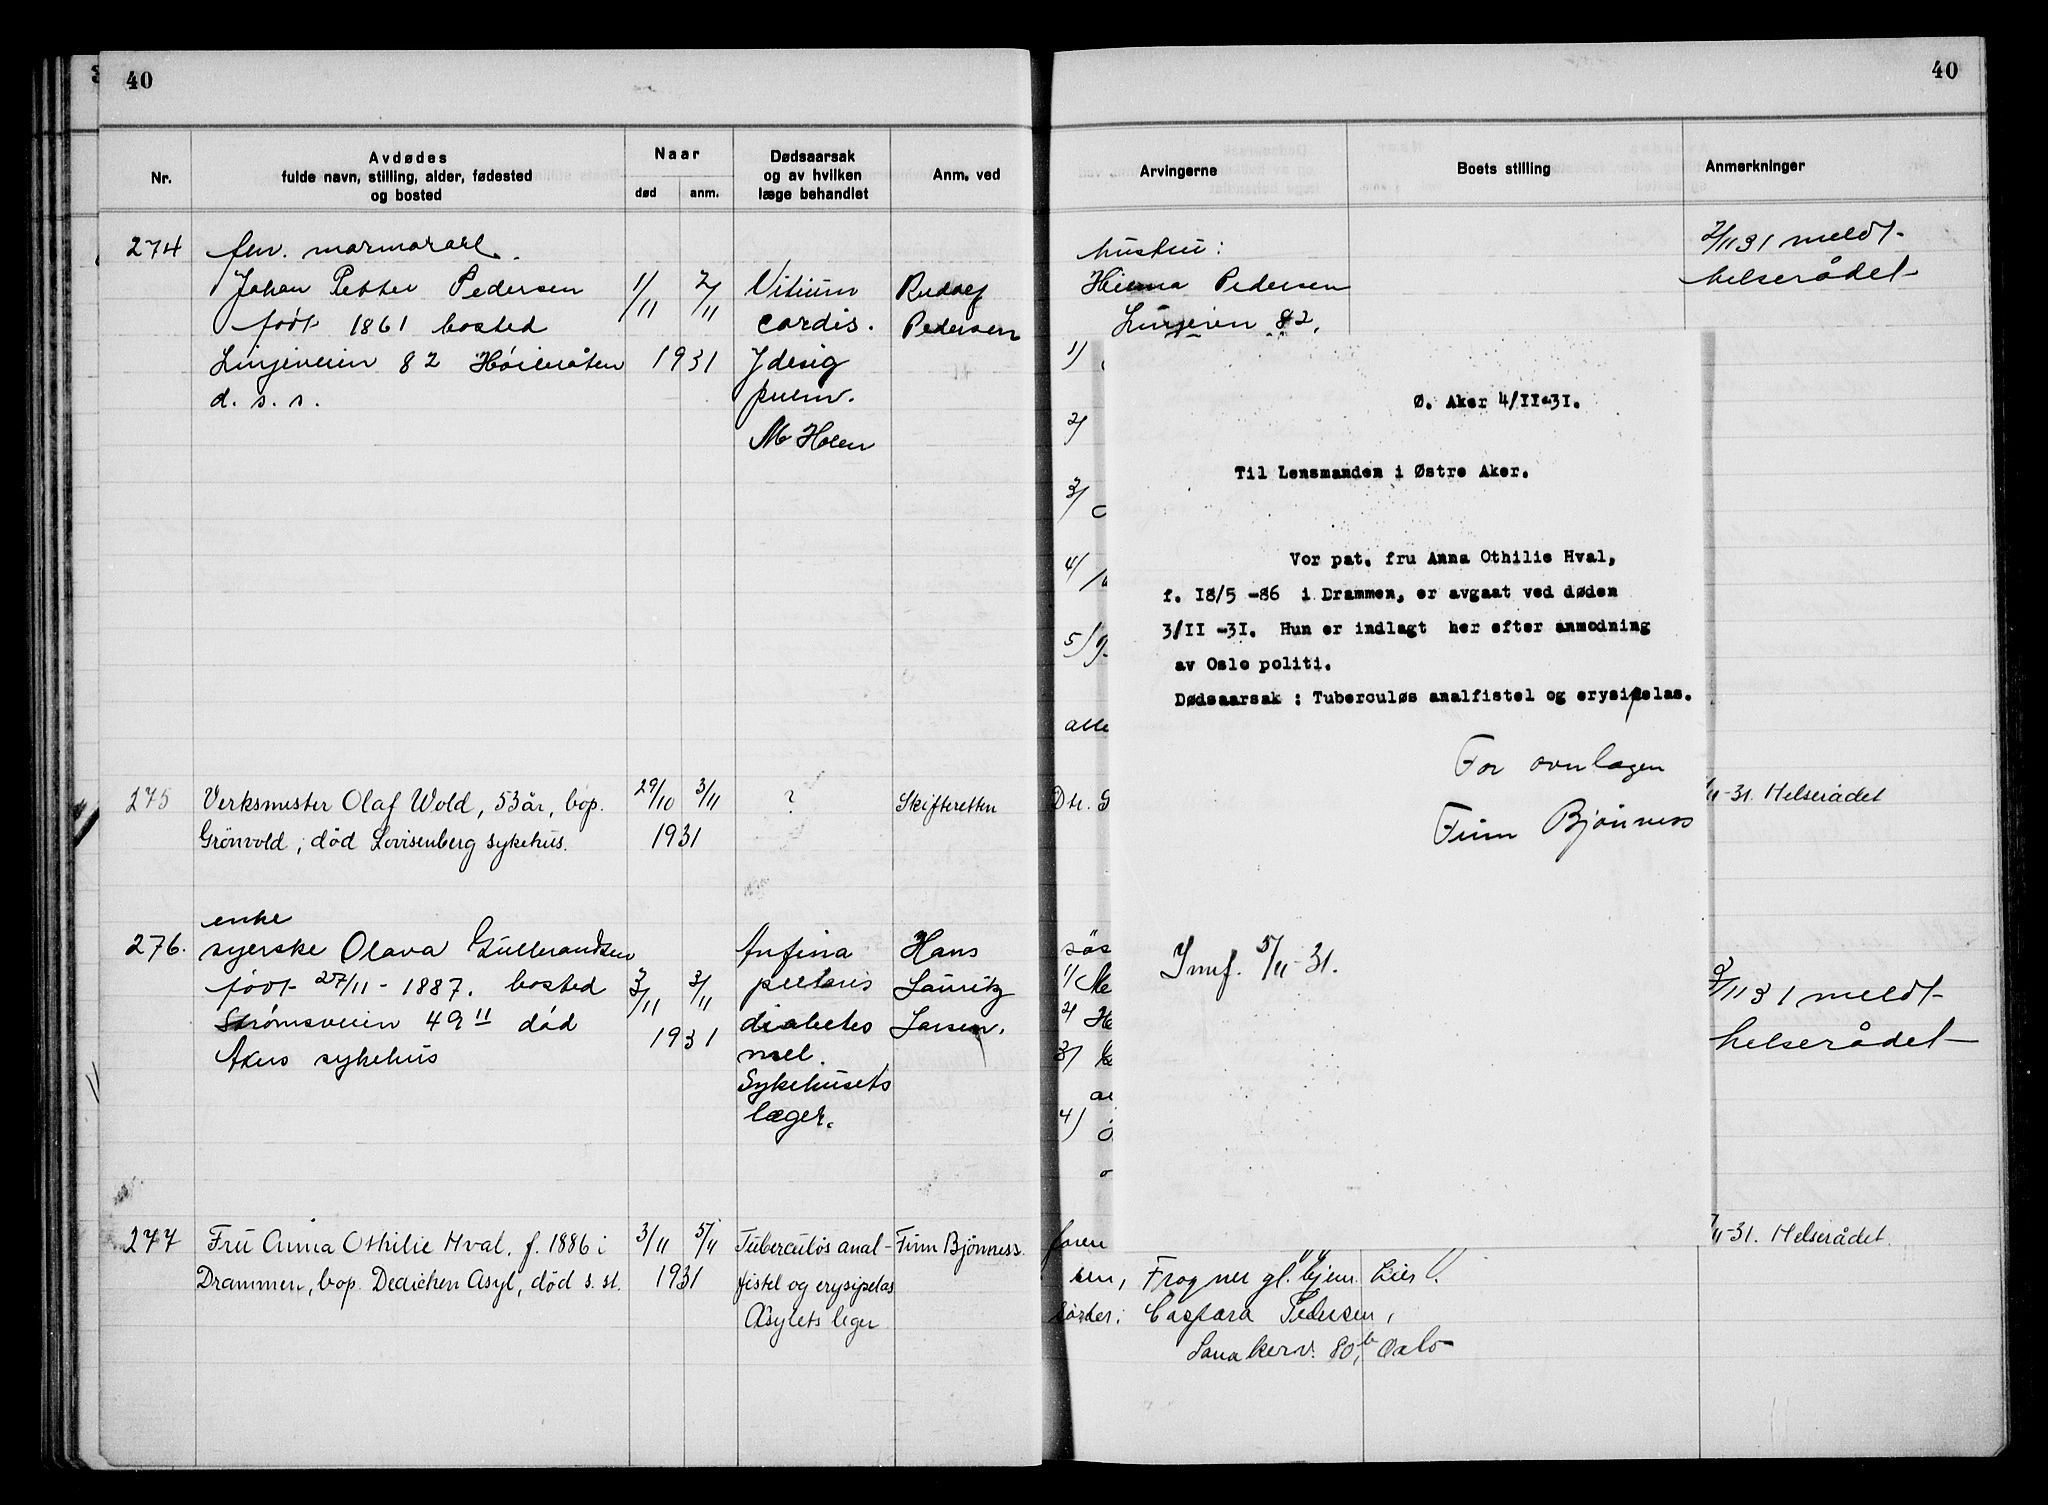 40
Nr.
Avdødes
fulde navn, stilling, alder, fødested
og bosted
Naar
død
anm.
Dødsaarsak
og av hvilken
læge behandlet
Anm. ved
274
Johan Petter Pedersen
født 1861 bosted
Linjeveien 82
d. s. s.
1/11
2/11
1931
Vitium
cordis.
M Holen
Rudolf
Pedersen
275
Verksmester Olaf Wold, 53 år, bop.
Grönvold, död Lovisenberg sykehus.
29/10
3/11
1931
?
Skifteretten
enke
276.
syerske Olava Gulbrandsen
født 27/11 - 1887. bosted
Strømsveien 49 II död
Akers sykehus
3/11
3/11
1931
Anfina
pectoris
diabetes
mel.
Sykehusets
læger.
Hans
Lauritz
Larsen.
277
Frü Anna Othilie Hval. f. 1886 i
Drammen, bop. Dedichen Asyl, död s. st.
3/11
5/11
1931
Tüberculös anal-
fistel og erysipelas
Asylets leger
Finn Bjönness.
40
Arvingerne
Boets stilling
Anmerkninger
hustru:
Pedersen
82.
2/11 31 meldt
helserådet
1/
2/
3/
4/
5/
alle
Ø. Aker 4/II-31.
Til Lensmanden i Østre Aker.
Vor pat. fru Anna Othilie Hval,
f. I8/5 -86 i Drammen, er avgaat ved døden
3/II -3I. Hun er indlagt her efter anmodning
av Oslo politi.
Dødsaarsak : Tuberculøs analfistel og erysipelas.
For overlægen
Finn Bjönness
Innf. 5/11-31.
11-31. Helserådet
søs
1/
2/
3/
4/
3/11 31 meldt
helserådet
11-31. Helserådet.
Frogner gl. hjem. Lier
Caspara Pedersen,
80, b Oslo